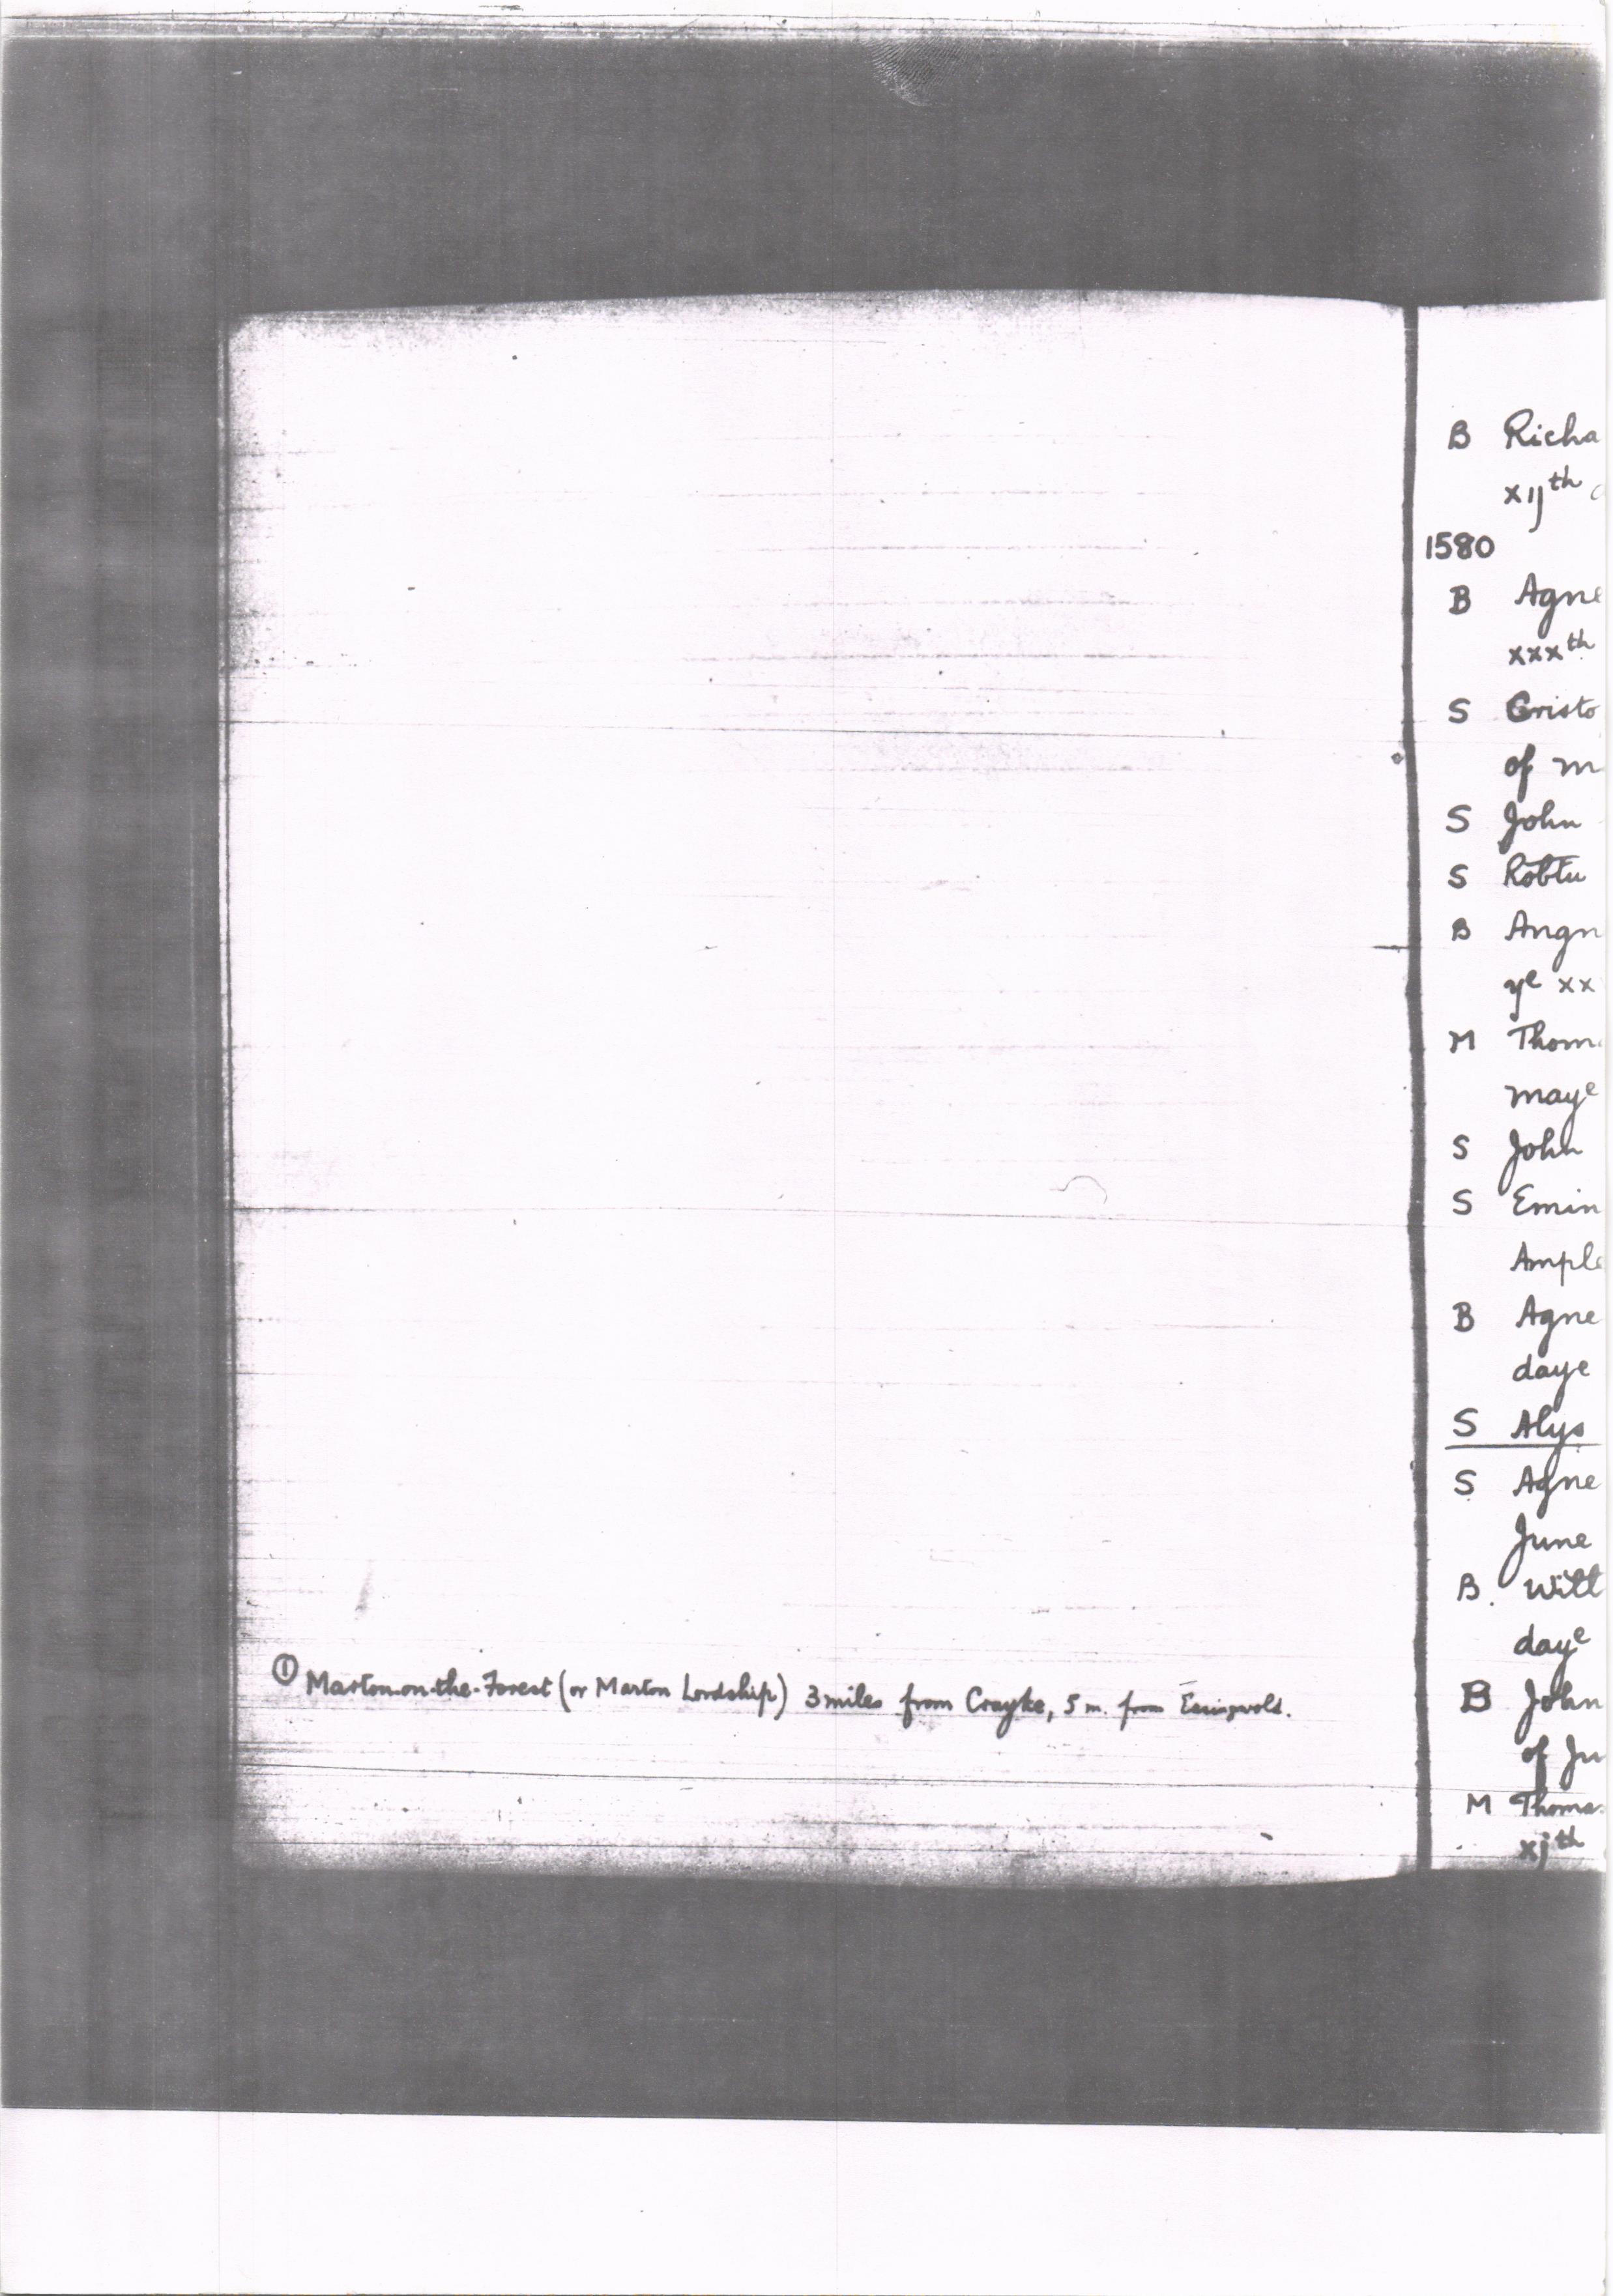 ① Marton-on-the-Forest (or Marton Lordship) 3 miles from Crayke, 5 m. from Easingwold.
B Richa
xijth
1580
B Agne
xxxth
S Cristo
of m
S John
S Robtu
B Angn
ye xx
M Thom
maye
S John
S Emin
Ample
B Agne
daye
S Alys
S Agne
June
B. Will
daye
B John
of Ju
M Thomas
xjth